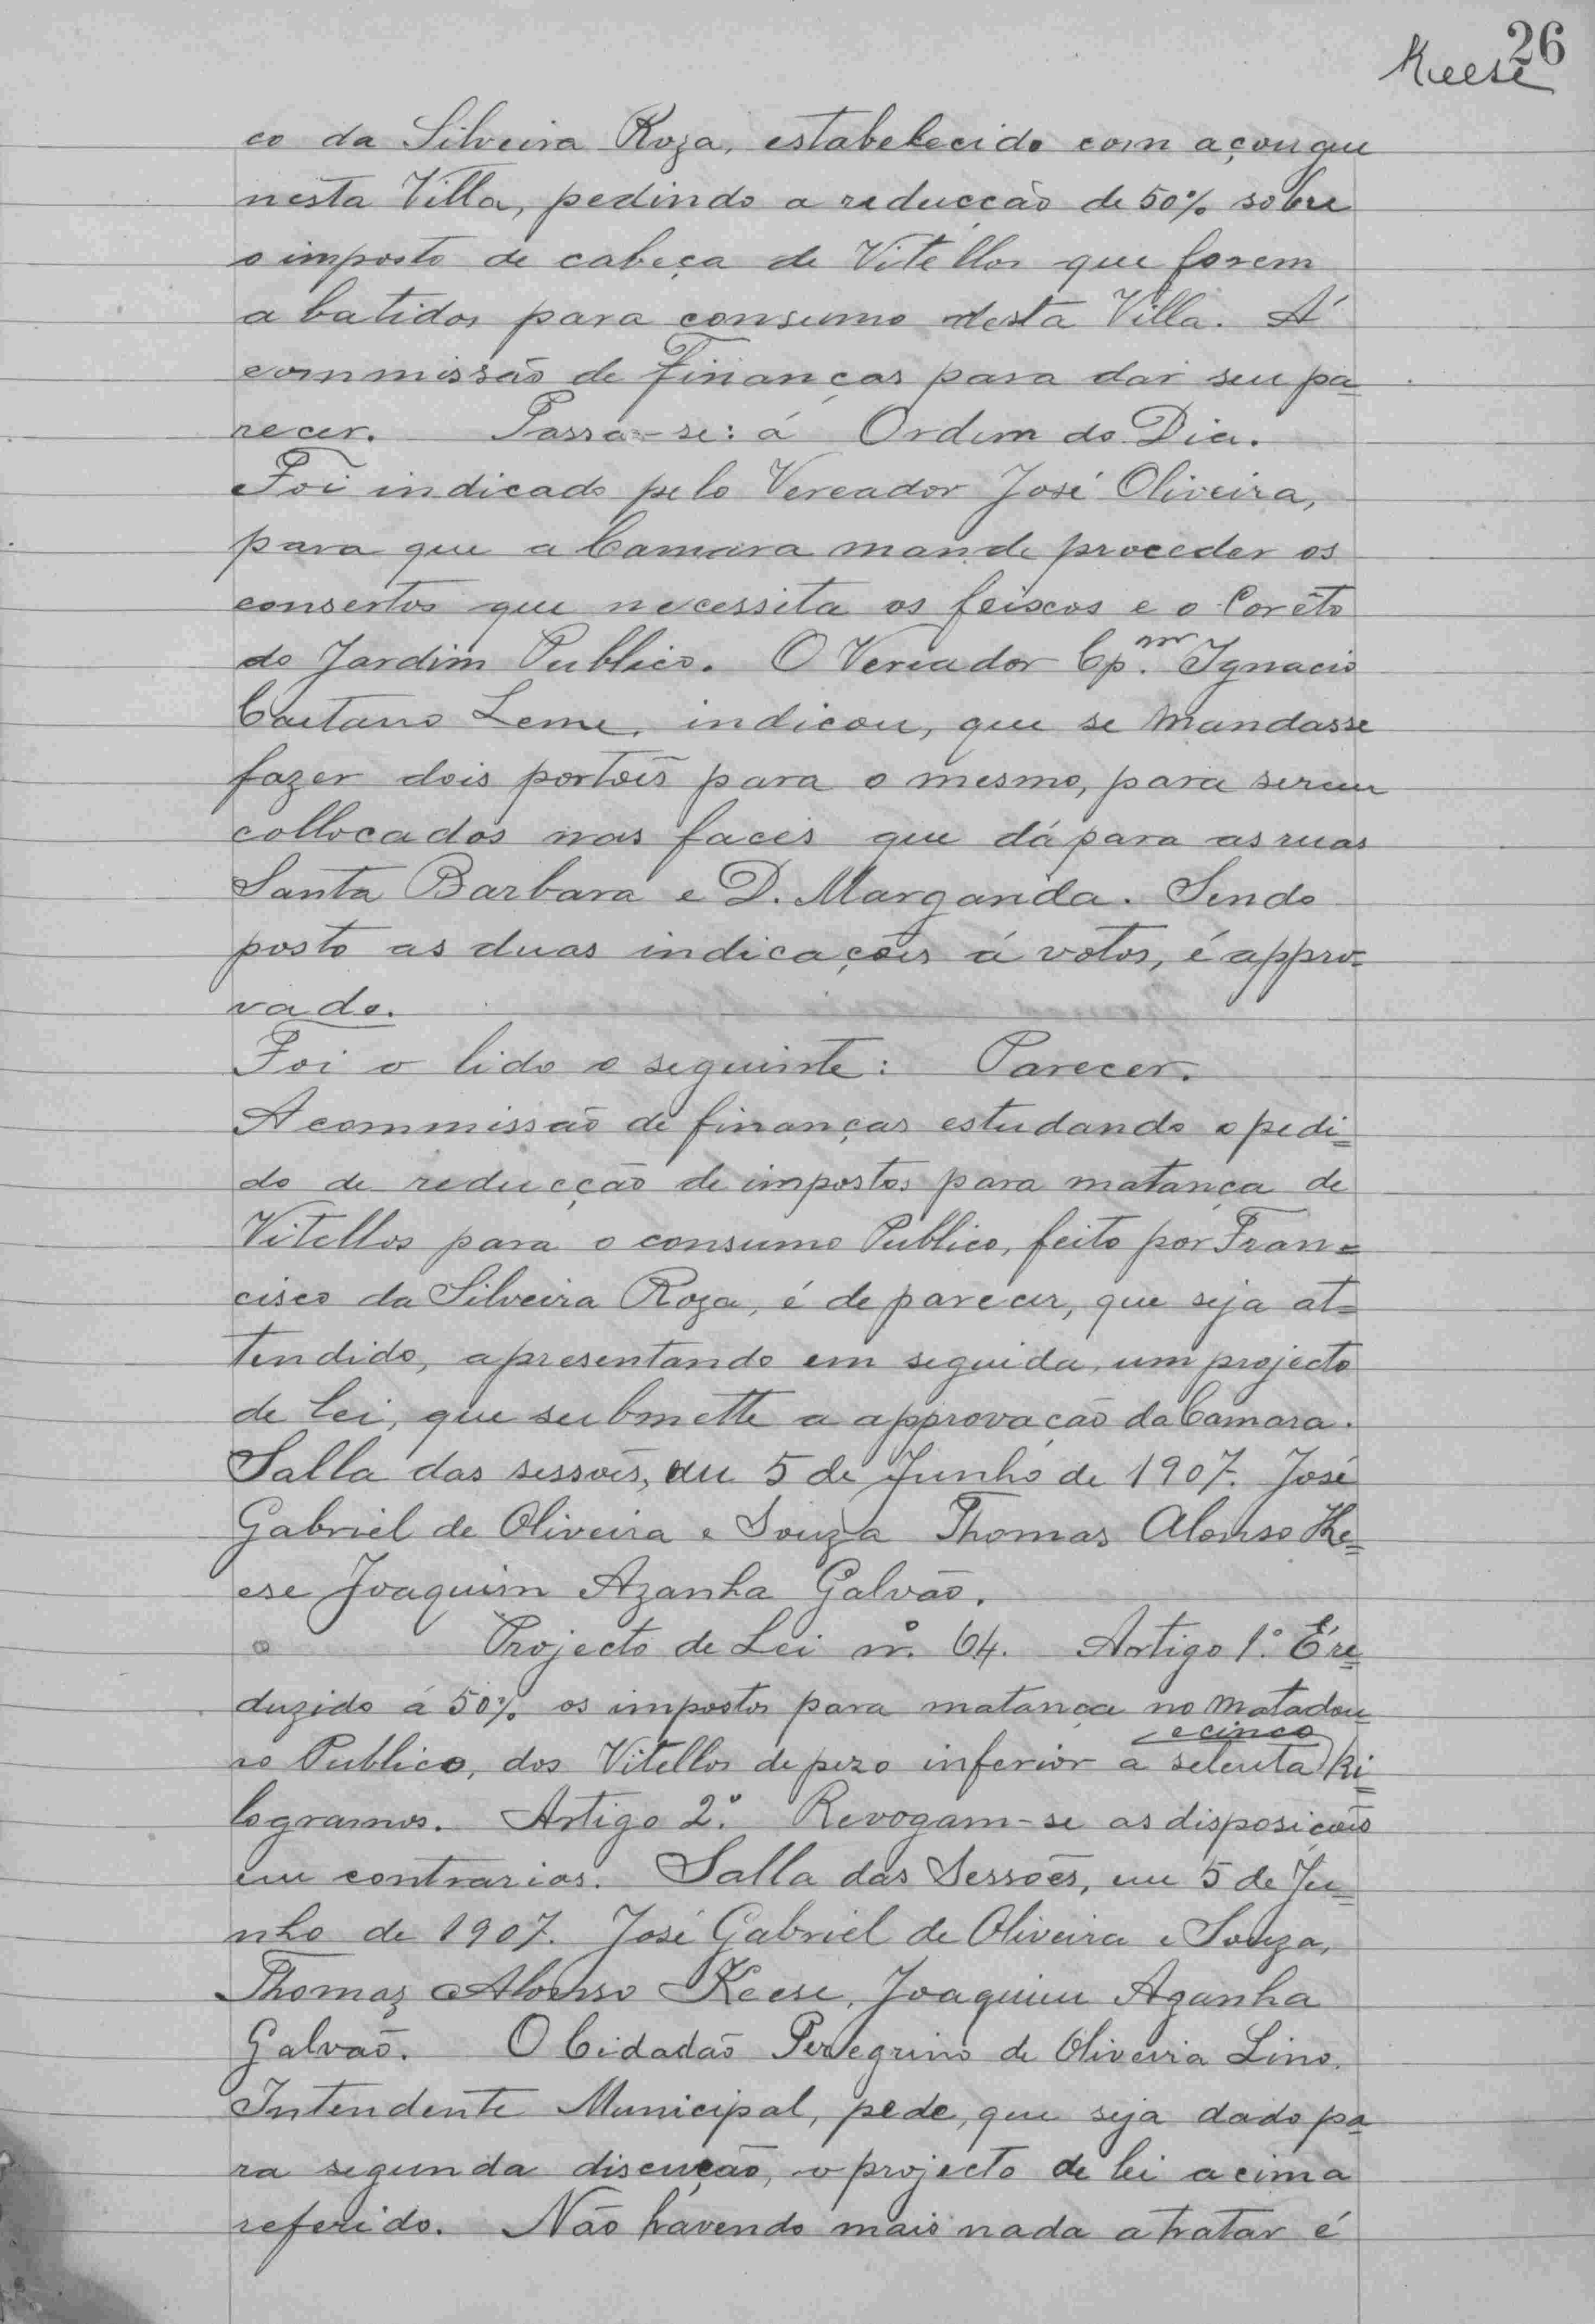 26
Keese
co da Silveira Roza, estabelecido com açougue
nesta Villa, pedindo a reducção de 50% sobre
o imposto de cabeça de Vitellos que forem
abatidos para consumo desta Villa. Á
commissão de Finanças para dar seu pa-
recer. Passa-se: á Ordem do Dia.
Foi indicado pelo Vereador José Oliveira,
para que a Camara mande proceder os
consertos que necessita os feixos e o Corêto
do Jardim Publico. O Vereador Cpm. Ignacio
Caetano Leme, indicou, que se mandasse
fazer dois portões para o mesmo, para serem
collocados nas faces que dá para as ruas
Santa Barbara e D. Margarida. Sendo
posto as duas indicações á votos, é appro=
vado.
Foi o lido o seguinte: Parecer.
A commissão de finanças estudando o pedi=
do de reducção de impostos para matança de
Vitellos para o consumo Publico, feito por Fran=
cisco da Silveira Roza, é de parecer, que seja at=
tendido, apresentando em seguida, um projecto
de lei, que submette a approvação da Camara.
Salla das sessões, em 5 de Junho de 1907. José
Gabriel de Oliveira e Souza Thomas Alonso Ke=
ese Joaquim Azanha Galvão.
Projecto de Lei nº. 64. Artigo 1º. É re=
duzido á 50% os impostos para matança no Matadou=
ro Publico, dos Vitellos de pezo inferior a setenta e cinco ki=
logramos. Artigo 2º. Revogam-se as disposições
em contrarios. Salla das Sessões, em 5 de Ju=
nho de 1907. José Gabriel de Oliveira e Souza,
Thomaz Alonso Keese, Joaquim Azanha
Galvão. O Cidadão Peregrino de Oliveira Lino,
Intendente Municipal, pede, que seja dado pa-
ra segunda discução, o projecto de lei acima
referido. Não havendo mais nada a tratar é